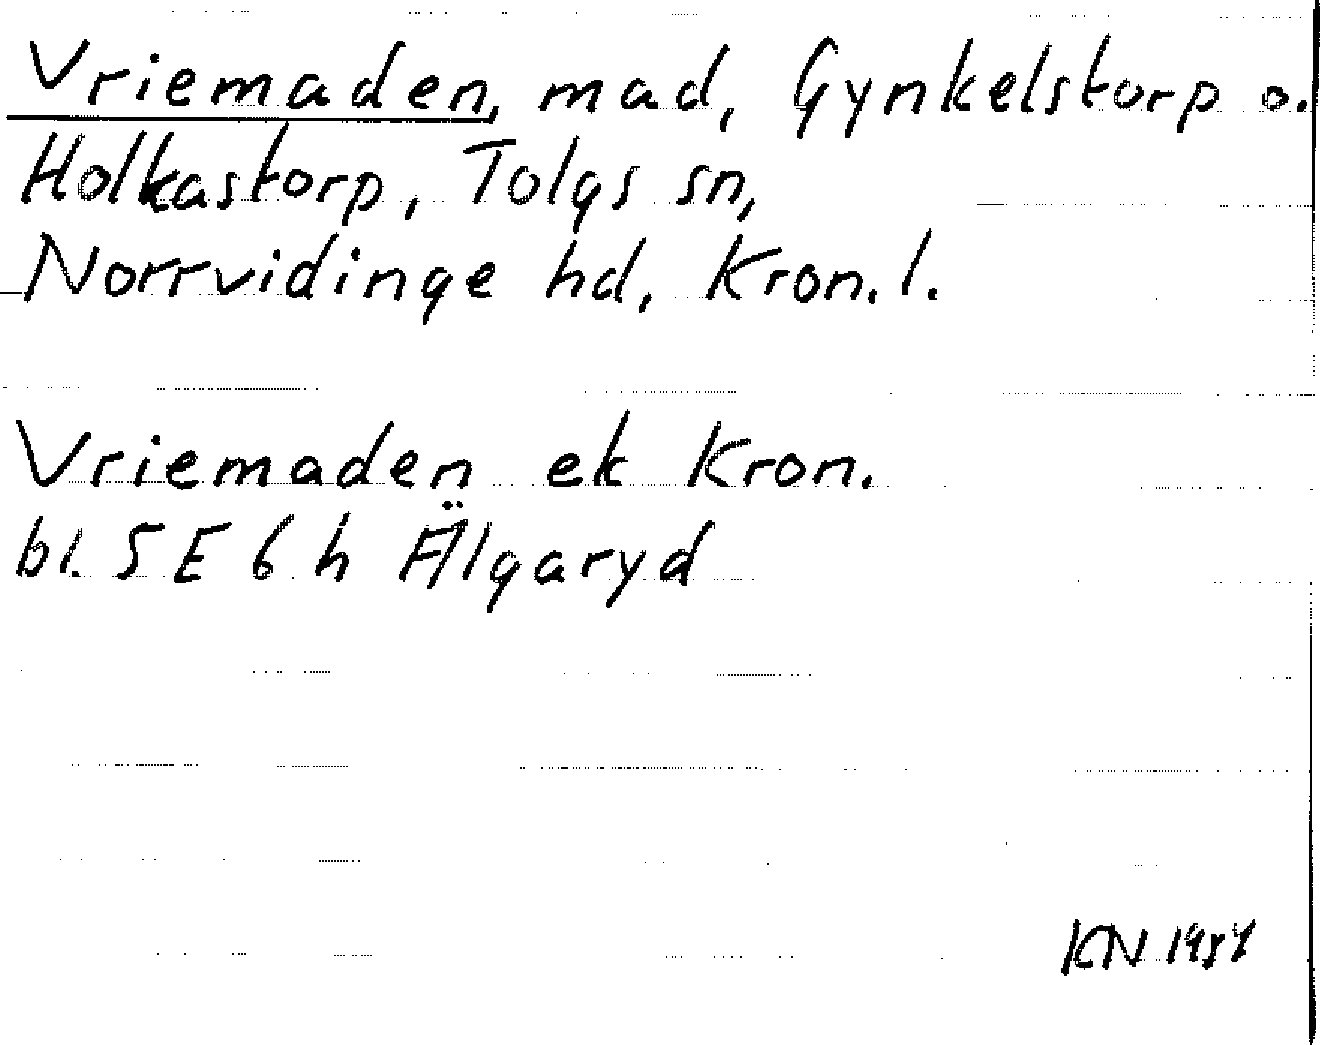 Vriemaden, mad, Gynkelstorp o.
Holkastorp, Tolgs sn,
Norrvidinge hd, Kron. l.
Vriemaden ek Kron.
bl. 5 E 6 h Älgaryd
KN 1984